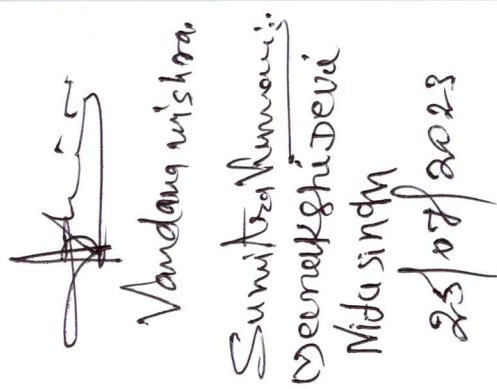 Vandana mishra
Sumitra Kumari
Meenakshi Devi
Nitu singh
25/07/2023